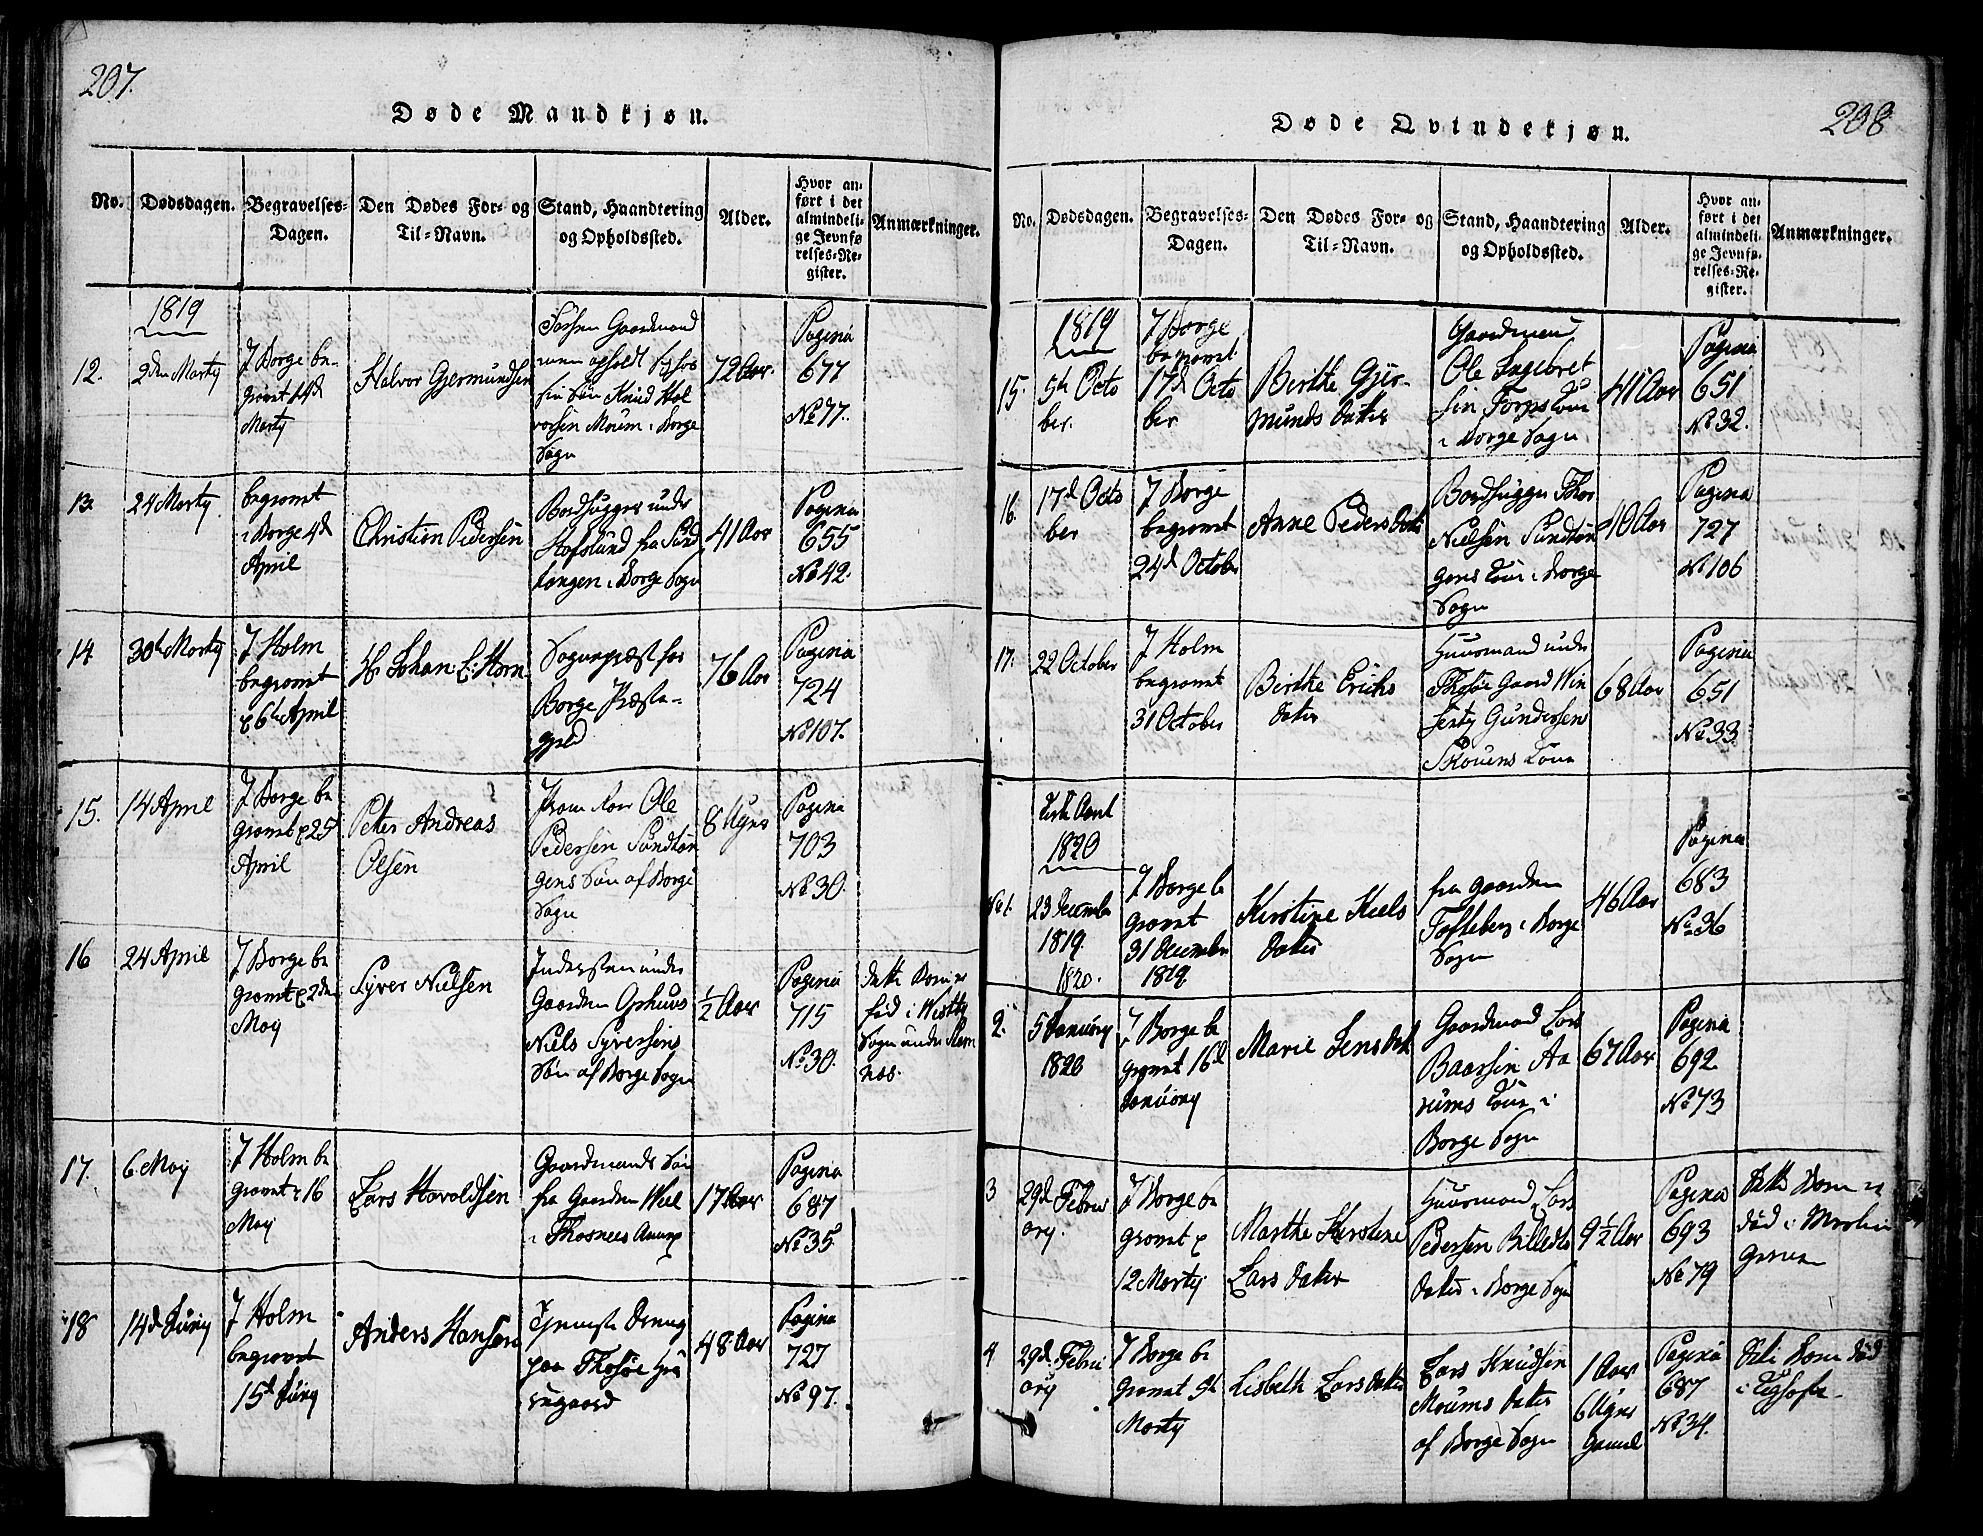 207.
Døde Mandkjøn.
No.
Dødsdagen.
Begravelses-
Dagen.
Den Dødes For- og
Til-Navn.
Stand, Haandtering
og Opholdssted.
Alder.
Hvor an-
ført i det
almindeli-
ge Jevnfø
relses-Re-
gister.
Anmærkninger.
1819
12.
2den Marty
I Borge be-
gravet 14d
Marty
Halvor Gjermundsen
Gaardmand
sin Søn Knud Hal
vorsen Moum i Borge
Sogn
72 Aar
Pagina
677
No 77.
13.
24 Marty
begravet
i Borge 4d
April
Christian Pedersen
Bordhugger under
Hafslund fra Sand
tangen i Borge Sogn
41 Aar
Pagina
655
No 42.
14
30te Marty
I Holm
begravet
d 6te April
Hr Johan E: Horn
Sognepræst for
Borge Præste-
gjeld
76 Aar
Pagina
724
No 107.
15.
14 April
I Borge be
gravet d 25
April
Peter Andreas
Olsen
Ole
Pedersen Sandtan
gens Søn af Borge
Sogn
8 Uger
Pagina
703
No 30.
16
24 April
I Borge be
gravet d 2den
May
Syver Nielsen
Indersten under
Gaarden Ophuus
Niels Syversens
Søn af Borge Sogn
½ Aar
Pagina
715
No 30.
dette Barn er
fød i
Sogn under
17.
6 May
I Holm be
gravet d 16
May
Lars Haraldsen
Gaardmands Søn
fra Gaarden
i Thosnees
17 Aar
Pagina
687
No 35
18
14d Juny
I Holm
begravet
15d Juny
Anders Hansen
Tjeneste Dreng
paa Thosøe
48 Aar
Pagina
727
No 97.
208
Døde Qvindekjøn.
No.
Dødsdagen.
Begravelses-
Dagen.
Den Dødes For- og
Til-Navn.
Stand, Haandtering
og Opholdssted.
Alder.
Hvor an-
ført i det
almindeli-
ge Jevnfø-
relses-Re-
gister.
Anmærkninger.
1819
15.
5te Octo
ber.
I Borge
begravet
17d Octo
ber
Berthe Gjer-
munds Datter
Gaardmand
Ole Ingebret
sen Torps Kone
i Borge Sogn
41 Aar
Pagina
651
No 32.
16.
17d Octo
ber
I Borge
begravet
24d October
Anne Peders Datter
Bordhugger Thor
Nielsen Sandtan
gens Kone i Borge
Sogn
40 Aar
Pagina
727
No 106
17.
22 October
I Holm
begravet
31 October
Berthe Erichs
Datter
Huusmand under
Thosøe Gaard
Gundersen
Skouens Kone
68 Aar
Pagina
651
No 33.
1820
No 1.
23 December
1819.
I Borge be
gravet
31 December
1819
Kirstine Niels
Datter
fra Gaarden
Tofteberg i Borge
Sogn
46 Aar
Pagina
683
No 36
1820.
2.
5 January
1820
I Borge be
gravet 16d
January
Marie Jens Dat
Gaardmand Lars
Baarsen Aa
rums Kone i
Borge Sogn
67 Aar
Pagina
692
No 73
3
29d Febru
ary.
I Borge be
gravet d
12 Marty
Marthe Kirstine
Lars Datter
Huusmand Lars
Pedersen
Datter i Borge Sogn
9½ Aar
Pagina
693
No 79
Dette Barn er
død i
4
29d Febru
ary
I Borge be
gravet 5te
Marty
Lisbeth Lars Datter
Lars Knudsen
Moums Datter
af Borge Sogn
1 Aar
6 Uger
Gamel
Pagina
687
No 34.
Barn død